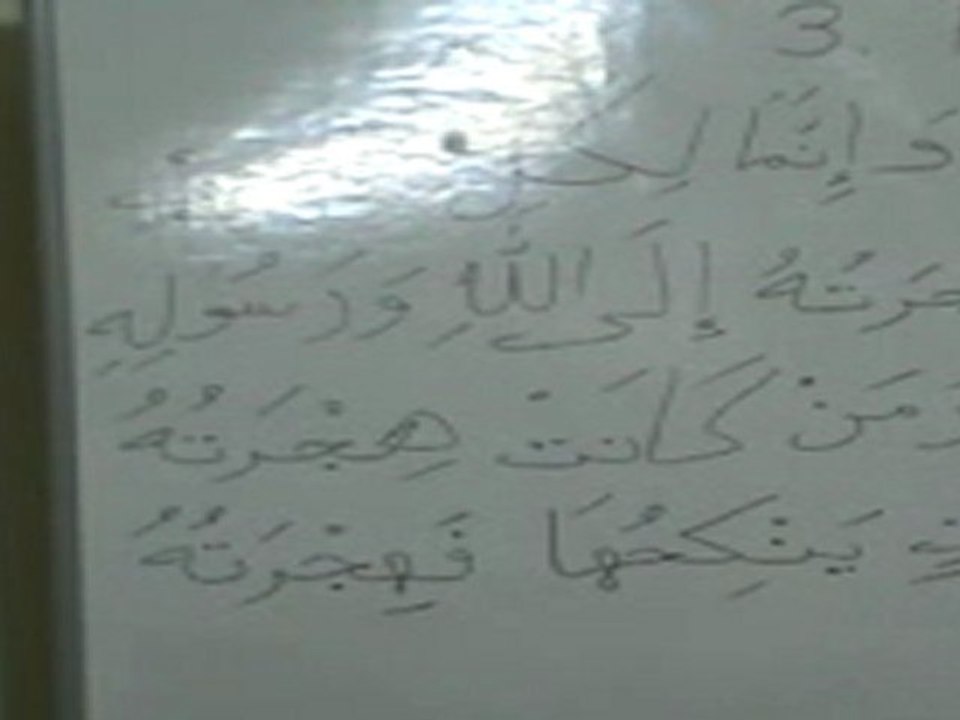 3.
وَإِنَّمَا لِكُلِّ
إِلَى اللَّهِ وَرَسُولِهِ
مَنْ كَانَتْ هِجْرَتُهُ
يَنْكِحُهَا فَهِجْرَتُهُ